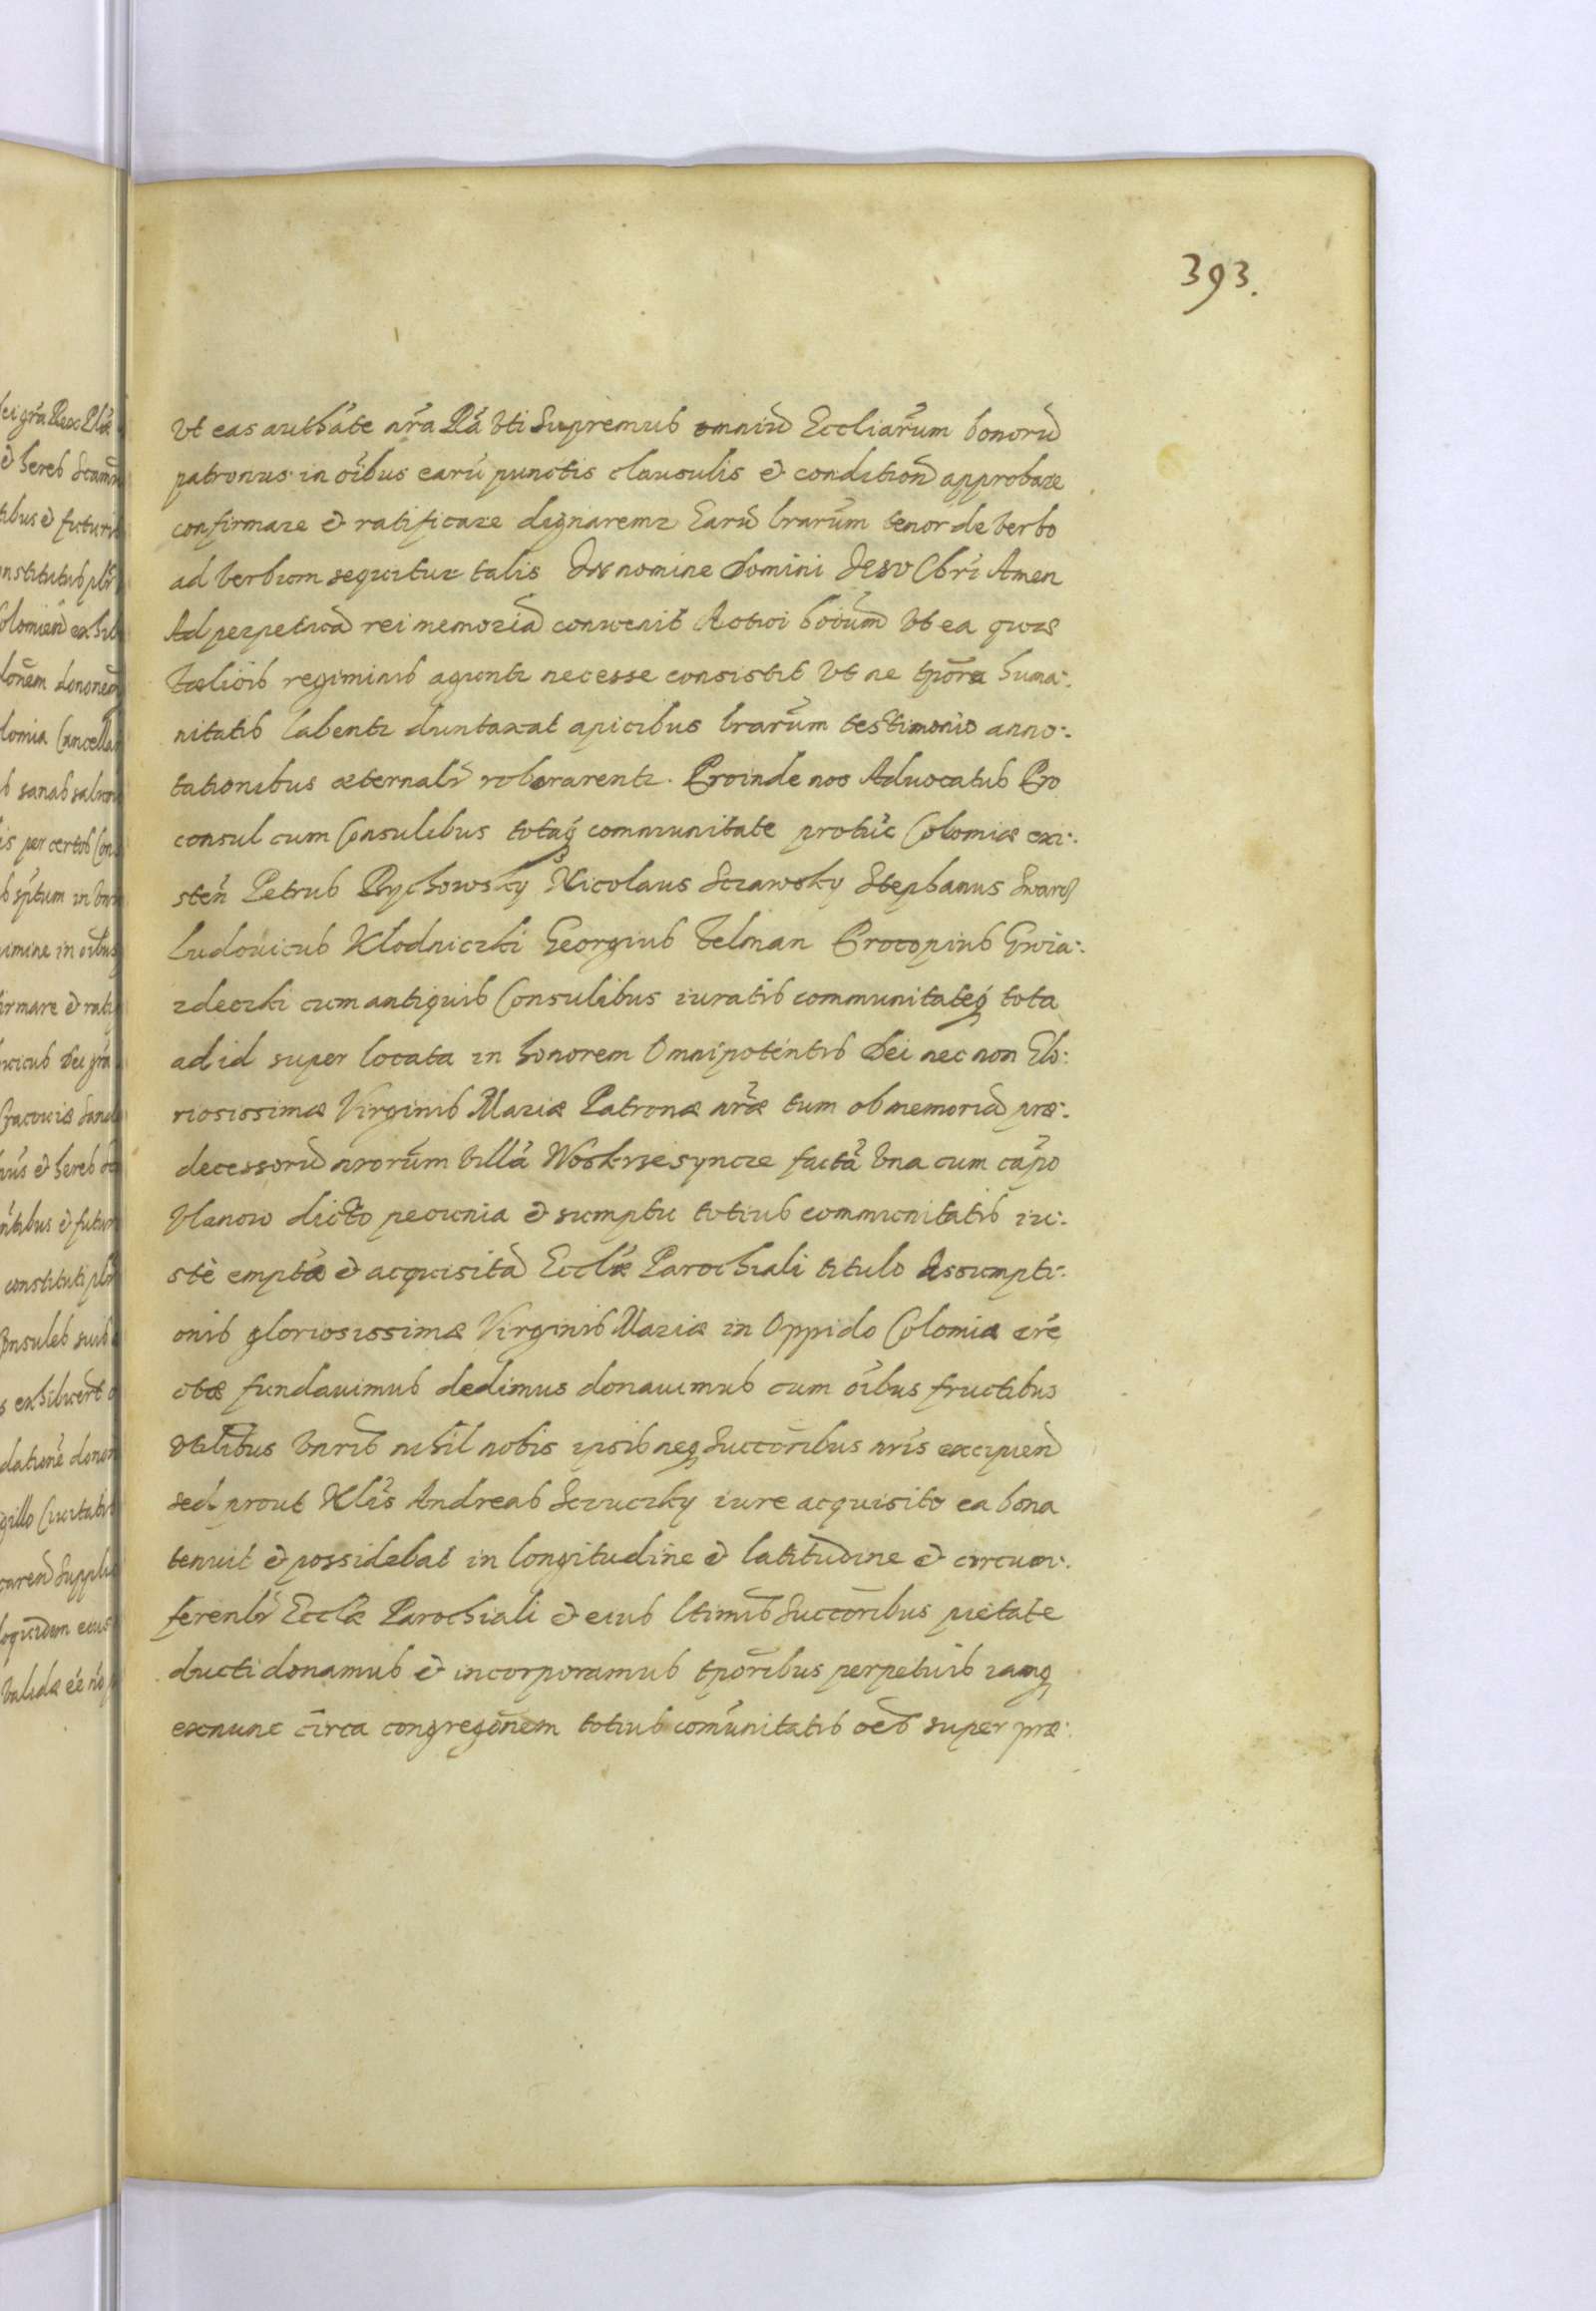 393.
Vt eas authãte nrã Rã Vti Supremus omniũ Eccliarũm bonorũ
patronus in oibus earũ punctis clausulis & condition̄ approbare
confirmare & ratificare dignaremr Earũ lrarũm tenor de Verbo
ad Verbum sequitur talis In nomine Domini Jesv Chri Amen
Ad perpetuã rei memoriã convenit Actui Vt ea quæ
regiminis aguntr necesse consistit Vt ne tpõra huma:
nitatis labentr duntaxat apicibus lrarũm testimonio anno:
tationibus æternalr roborarentr. Proinde nos Aduocatus Pro
consul cum Consulibus totaq communitate protũc Colomiæ exi:
sten̄ Petrus Rychowsky Nicolaus Sczawsky Stephanus
Ludouicus Klodniczki Georgius Telman Procopius Gwia:
zdeczki cum antiquis Consulibus iuratis communitateq tota
ad id super locata in honorem Omnipotentis Dei nec non Glo:
riosissimæ Virginis Mariæ Patronæ nræ tum ob memoriã præ:
decessorũ nrorũm Villã Woskrzesyncze factã Vna cum cãpo
Vlanow dicto pecunia & sumptu totius communitatis iu:
stè emptã & acquisitã Ecclæ Parochiali titulo Assumpti:
onis gloriosissimæ Virginis Mariæ in Oppido Colomiæ ere
ctæ fundauimus dedimus donauimus cum oibus fructibus
Vtilibus Vnris nihil nobis ipsis neq Succõribus nris excipien̄
sed prout Nlis Andreas Sczuczky iure acquisito ea bona
tenuit & possidebat in longitudine & latitudine & circum:
ferenr Ecclæ Parochiali & eius ltimis Succõribus pietate
ducti donamus & incorporamus tpõribus perpetuis iamq
exnunc circa congregõnem totius com̃unitatis oes super præ: